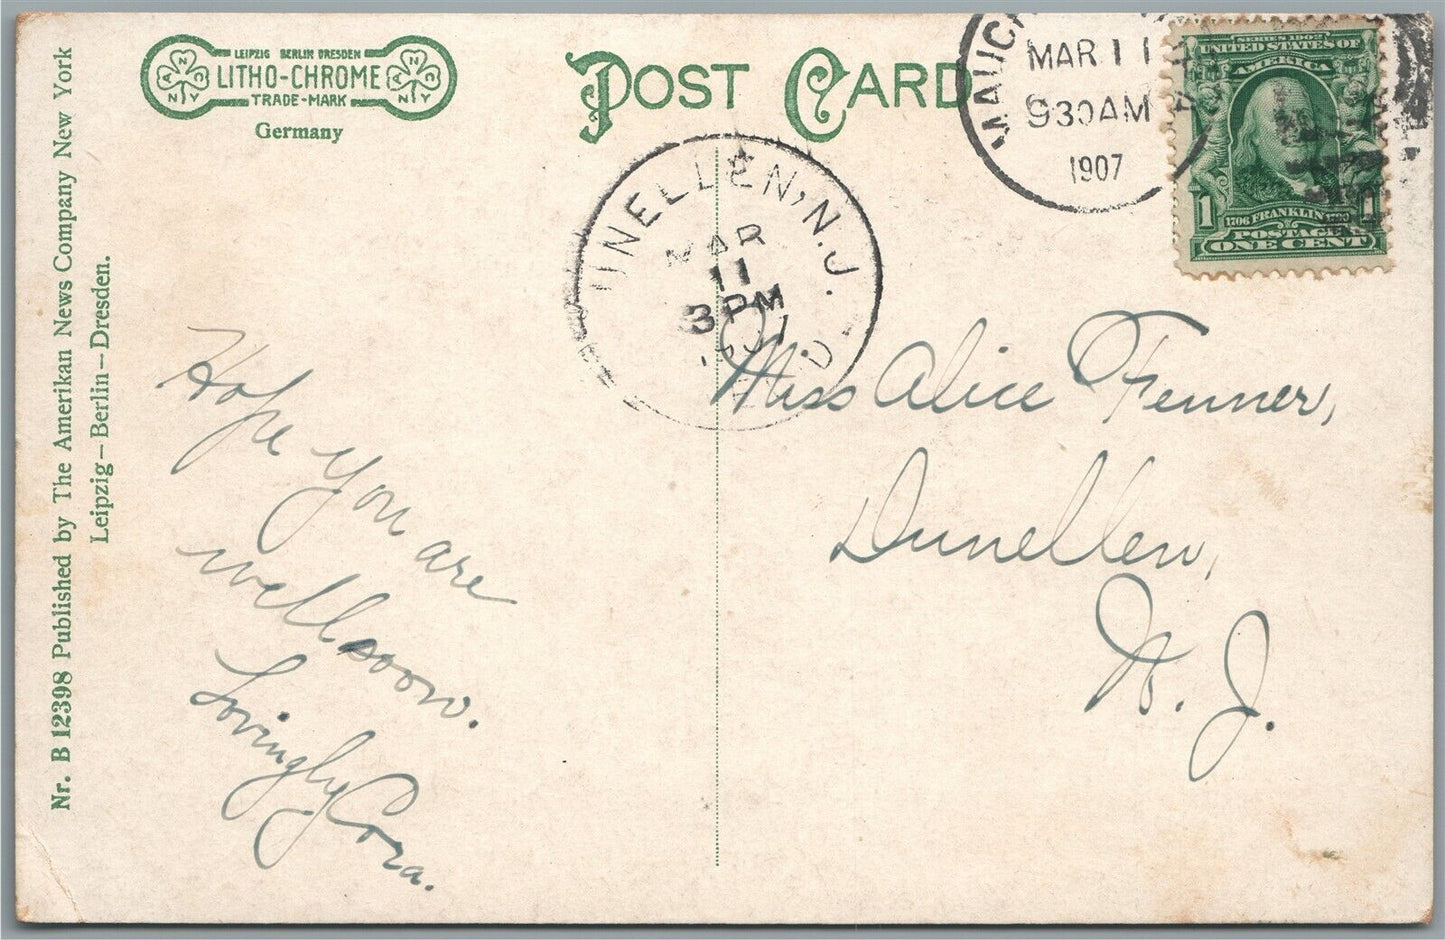 LEIPZIG BERLIN DRESDEN
LITHO-CHROME
TRADE-MARK
Germany
POST CARD
MAR 11
930AM
1907
SERIES 1902
UNITED STATES OF
AMERICA
1706 FRANKLIN 1790
1 1
POSTAGE
ONE CENT
UNELLEN, N.J.
MAR
11
3 PM
1907
Nr. B 12398 Published by The Amerikan News Company New York
Leipzig–Berlin–Dresden.
Hope you are
well soon.
Lovingly
Cora.
Miss Alice Fenner,
Dunellen,
N. J.